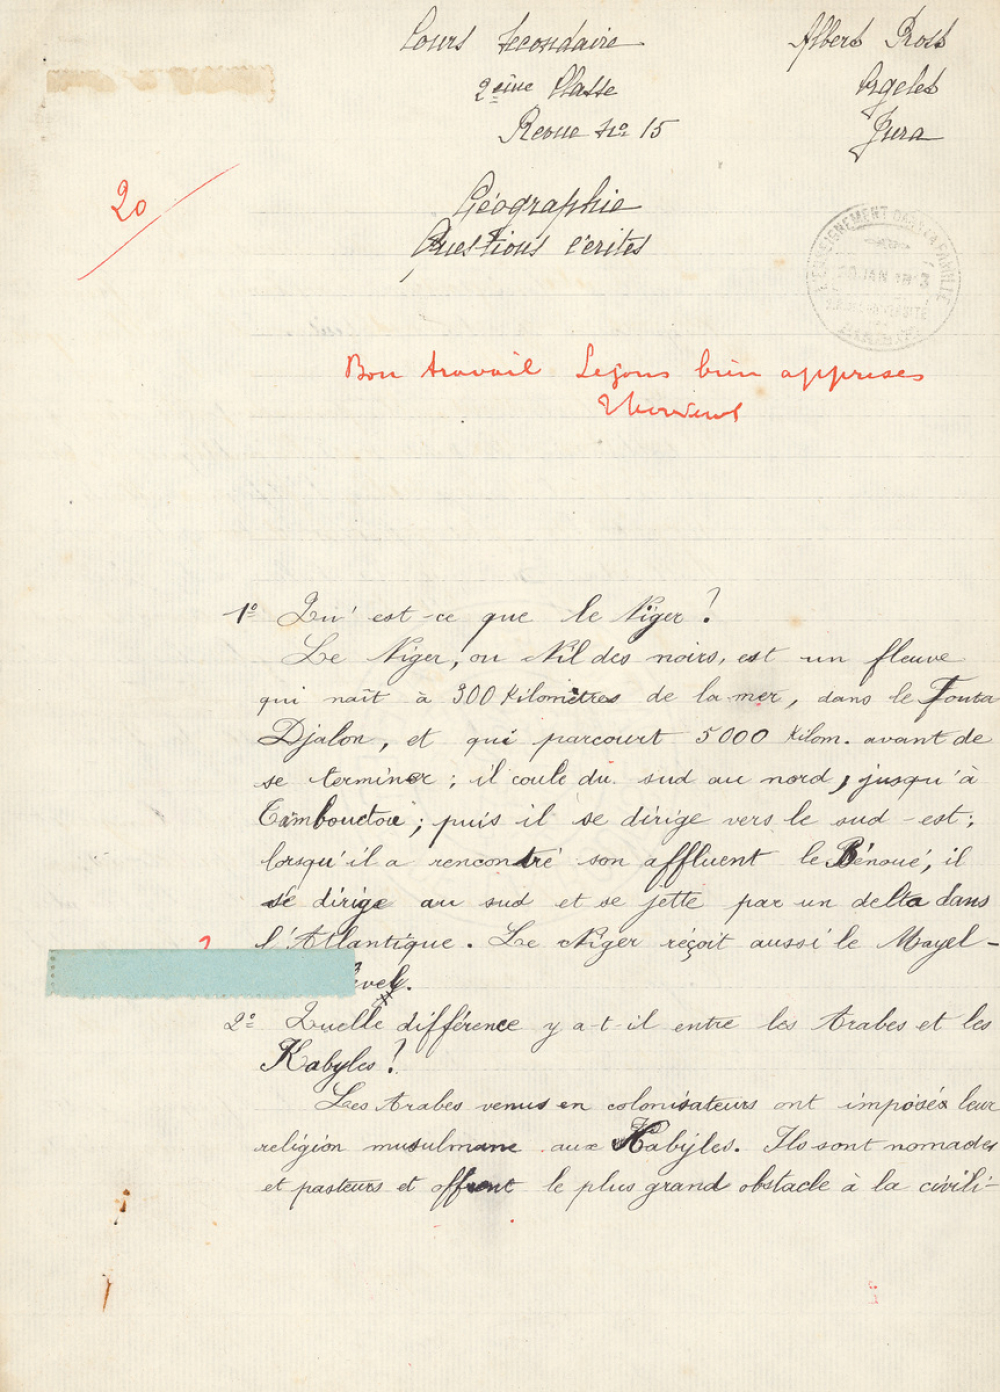 Cours Secondaire
2ème Classe
Revue No 15
Albert Prost
Orgelet
Jura
20
Géographie
Questions écrites
Bon travail Leçons bien apprises
1º Qu'est-ce que le Niger ?
Le Niger, ou Nil des noirs, est un fleuve
qui naît à 300 kilomètres de la mer, dans le Fouta
Djalon, et qui parcourt 5000 kilom. avant de
se terminer ; il coule du sud au nord, jusqu'à
Tambouctou ; puis il se dirige vers le sud-est ;
lorsqu'il a rencontré son affluent le Bénoué, il
se dirige au sud et se jette par un delta dans
l'Atlantique. Le Niger réçoit aussi le Mayel-
2º Quelle différence y a-t-il entre les Arabes et les
Kabyles ?
Les Arabes venus en colonisateurs ont imposés leur
religion musulmane aux Kabyles. Ils sont nomades
et pasteurs et offrent le plus grand obstacle à la civili-